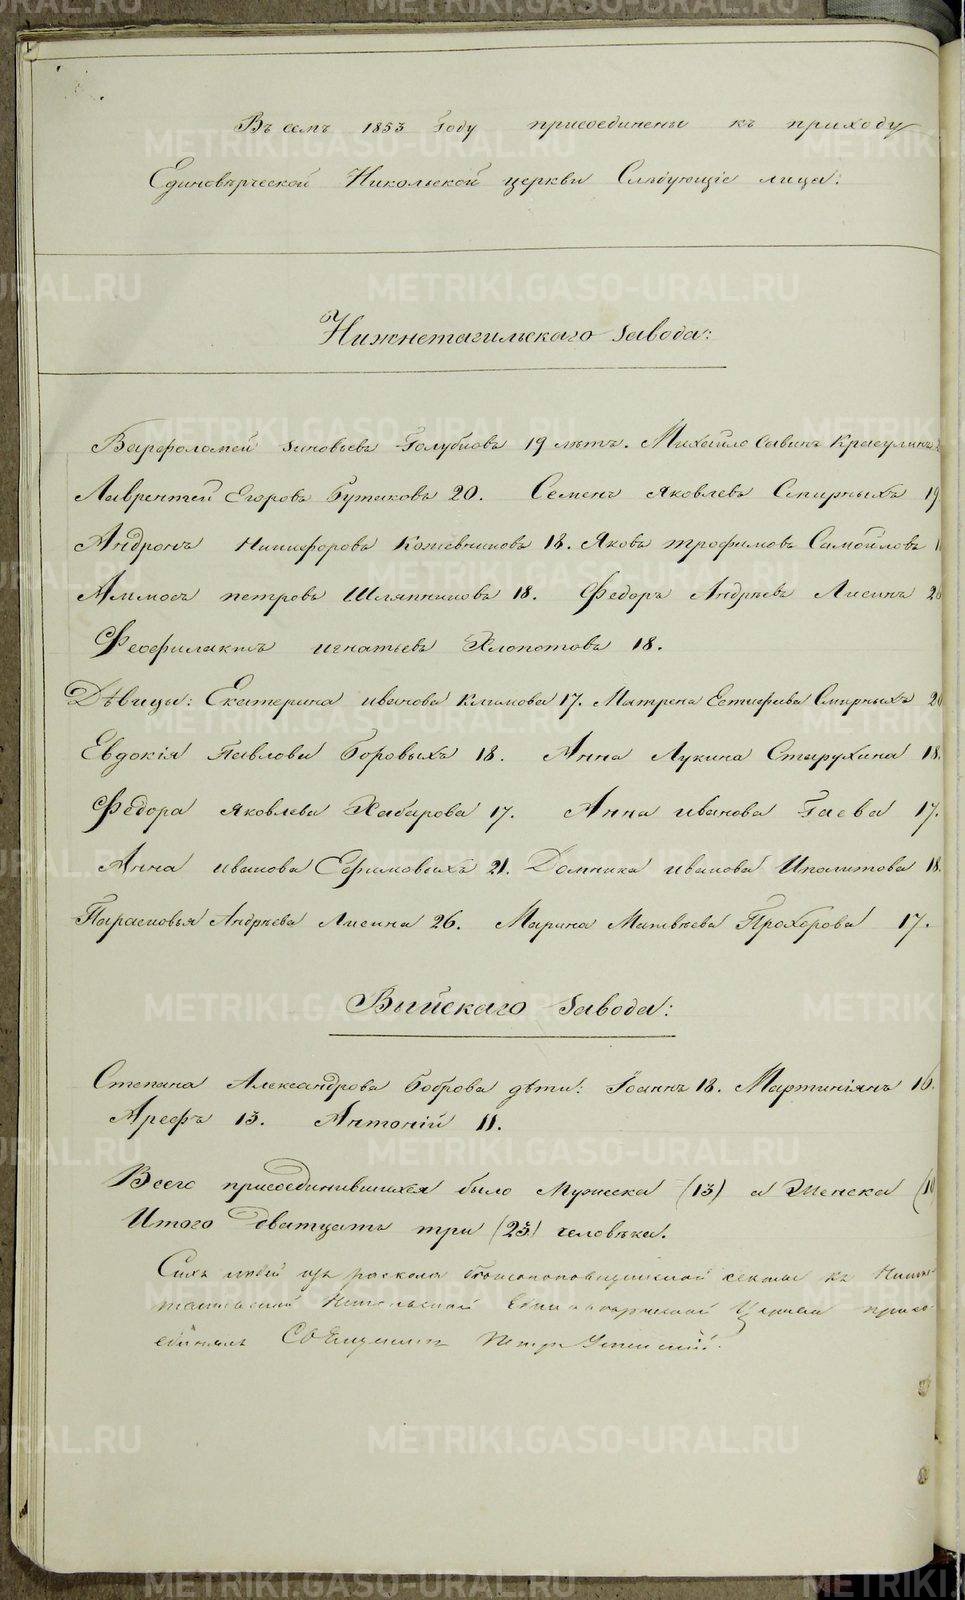 Въ семъ 1853 году присоединены къ приходу
Единовѣрческой Никольской церкви Слѣдующіе лица:
Нижнетагильскаго завода:
Варфоломей Зиновьевъ Голубцовъ 19 лѣтъ. Михайло Савинъ Красулинъ
Лаврентей Егоровъ Бутаковъ 20. Семенъ Яковлевъ Смирныхъ 19
Андронъ Никифоровъ Кожевниковъ 18. Яковъ трофимовъ Самойловъ
Аммосъ петровъ Шляпниковъ 18. Федоръ Андрѣевъ Лисинъ
Феофилактъ игнатьевъ Хлопотовъ 18.
Дѣвицы: Екатерина иванова Климова 17. Матрена Естифеева Смирныхъ
Евдокія Павлова Боровыхъ 18. Анна Лукина Старухина 18.
Федора Яковлева Хабарова 17. Анна иванова Гаева 17.
Анна иванова Ефимовыхъ 21. Домника иванова Ипатова 18.
Парасковья Андрѣева Лисина 26. Марина Матвѣева Прохорова 17.
Выйскаго завода:
Степана Александрова Боброва дѣти: Іоаннъ 18. Мартиніянъ 16.
Арефъ 13. Антоній 11.
Всего присоединившихся было Мужеска (13) а Женска
Итого дватцать три (23) человѣка.
Сихъ людей изъ раскола секты къ
Никольской Единоверческой Церкви присо-
единилъ Священникъ Петръ
METRIKI.GASO-URAL.RU